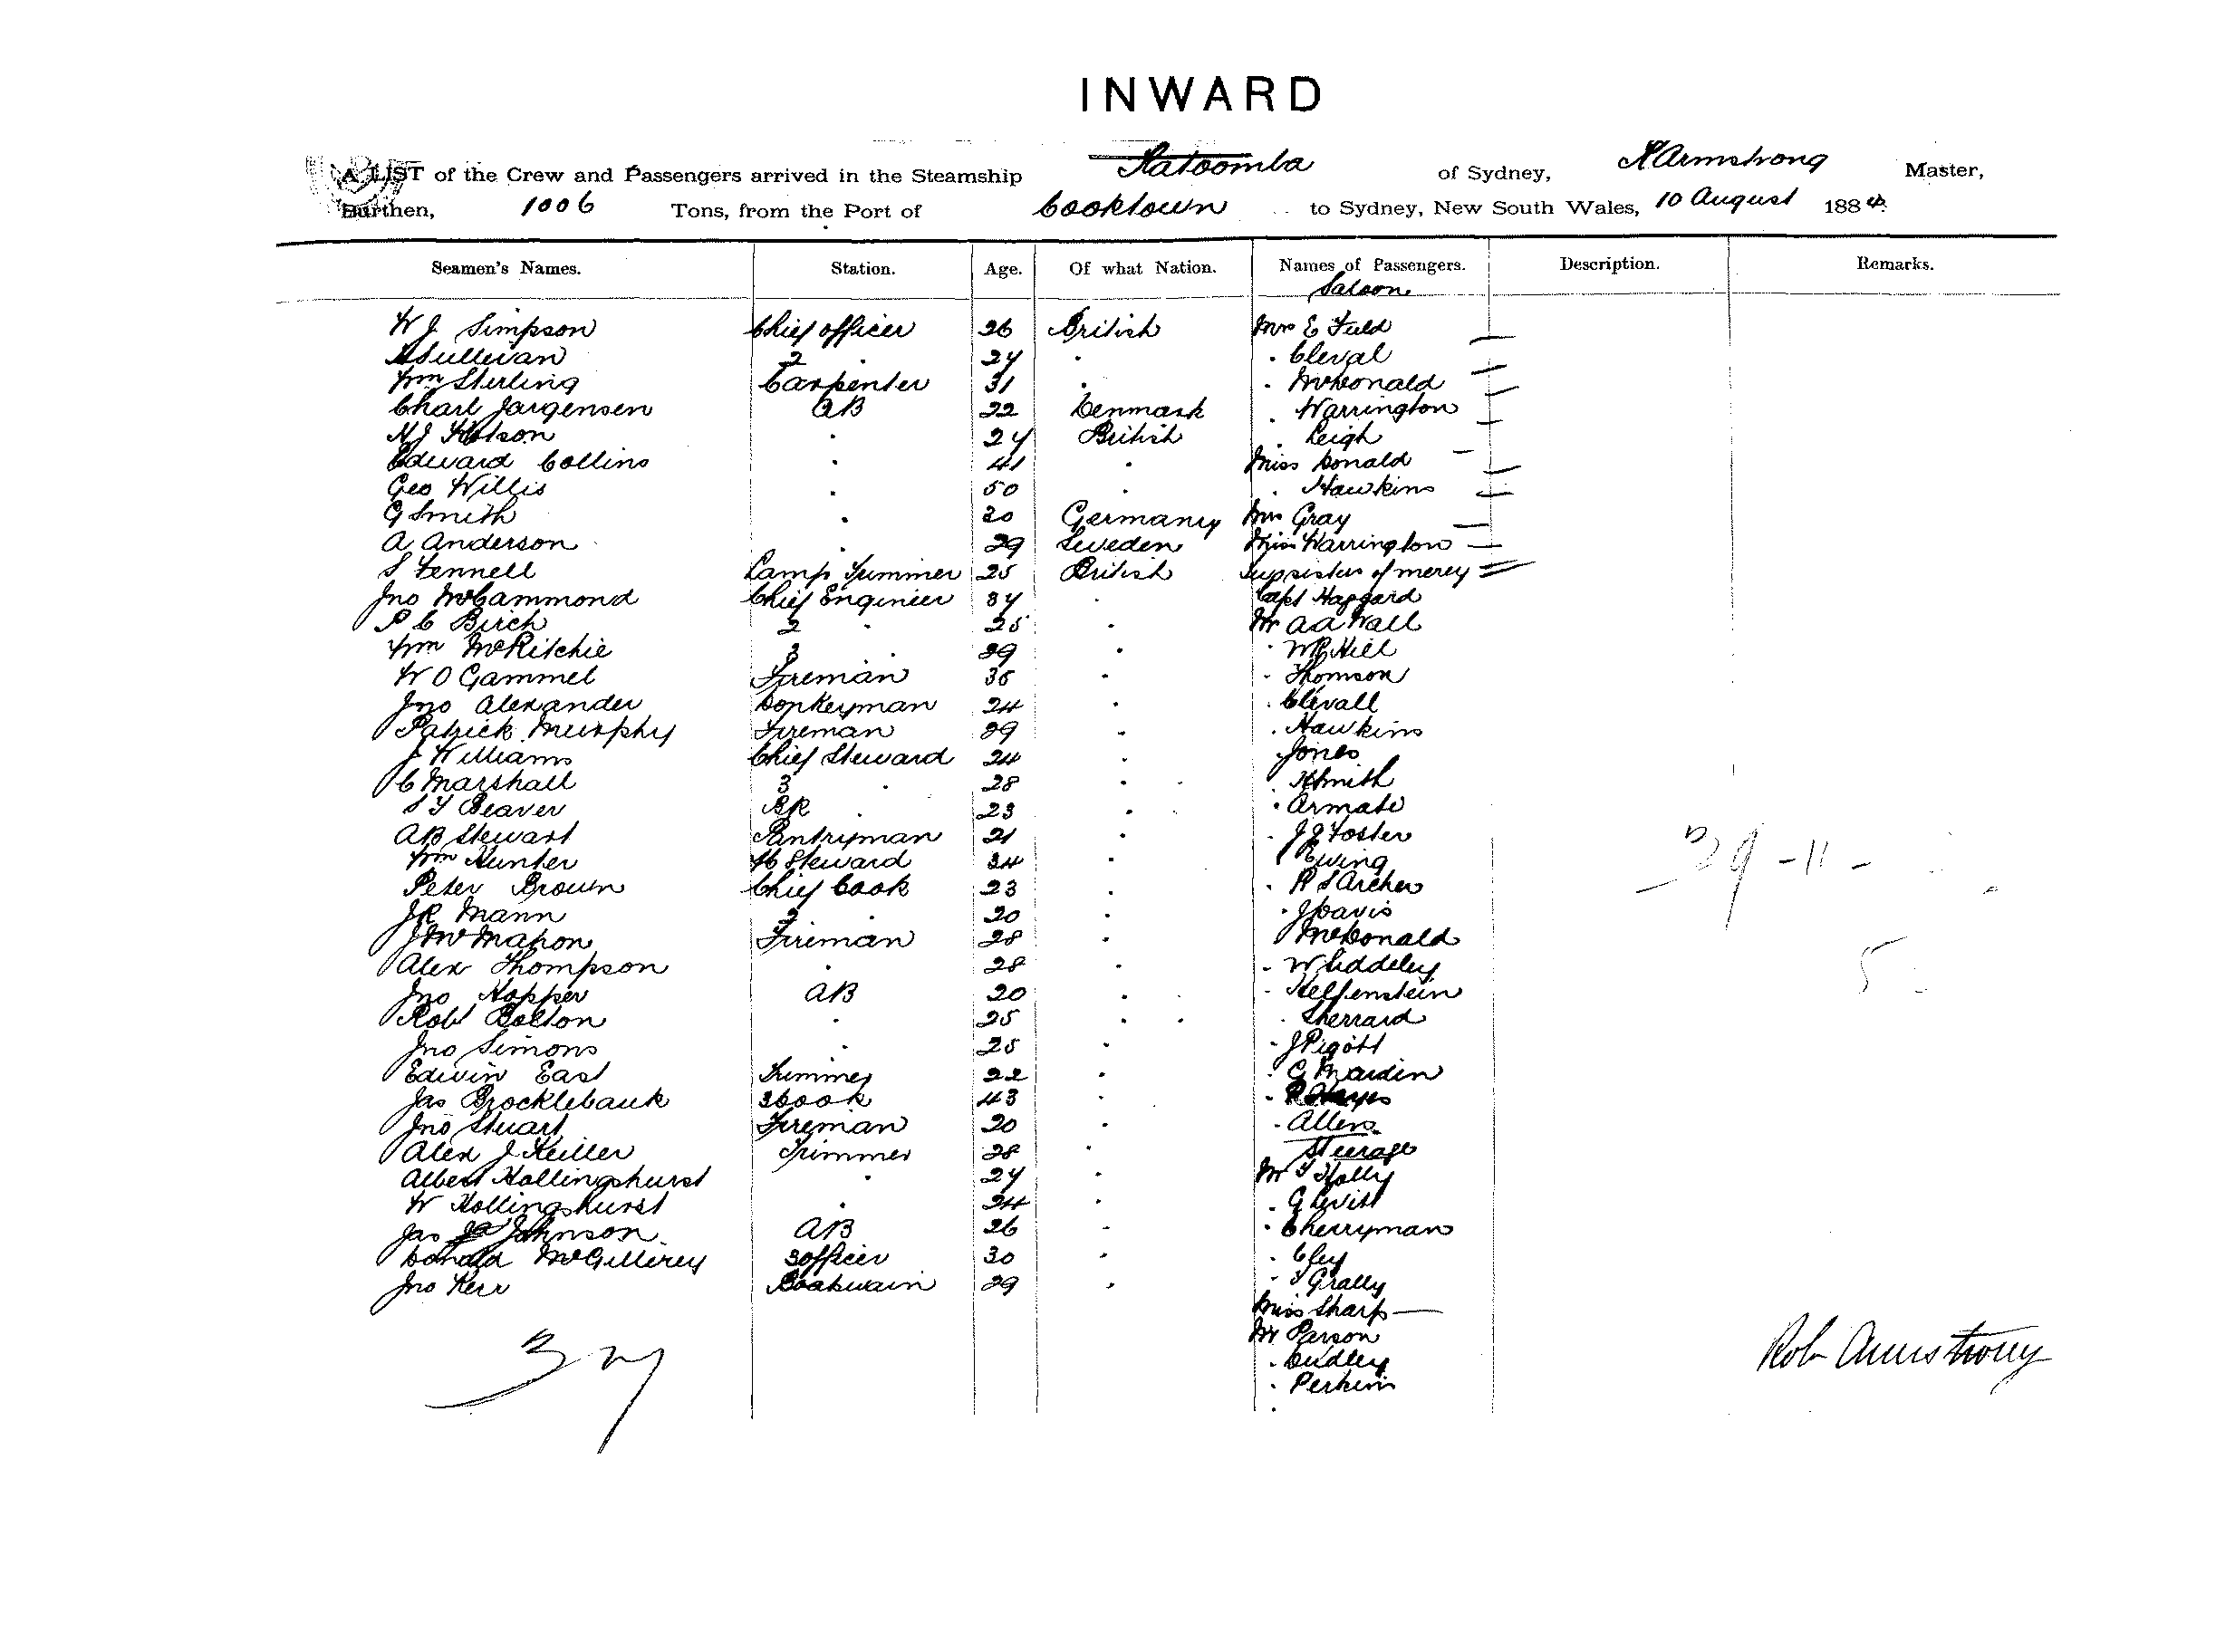 INWARD
A LIST of the Crew and Passengers arrived in the Steamship Katoomba of Sydney, R Armstrong Master,
Burthen, 1006 Tons, from the Port of Cooktown to Sydney, New South Wales, 10 August 1884
Seamen's Names. Station. Age. Of what Nation. Names of Passengers. Description. Remarks.
Saloon
W J Simpson Chief officer 26 British Mrs E Field
Sullivan 2 . 27 . . Cleval
Wm Sterling Carpenter 31 . . McDonald
Charl Jargensen AB 22 Denmark . Warrington
. 27 British . Leigh
Edward Collins . 41 . Miss Donald
Geo Willis . 50 . . Hawkins
G Smith . 30 Germany Mrs Gray
A Anderson . 29 Sweden Miss Warrington
S Fennell Lamp Trimmer 25 British sisters of mercy
Jno McCammond Chief Engineer 37 . Capt Haggard
P C Birch 2 . 25 . Mr A A Wall
Wm McRitchie 3 . 29 . . Hill
W O Gammel Fireman 36 . . Thomson
Jno Alexander Donkeyman 24 . . Clevall
Patrick Murphy Fireman 29 . . Hawkins
J Williams Chief Steward 24 . . Jones
C Marshall 3 . 28 . . Smith
S T Beaver BR 23 . . Armate
A B Stewart Pantryman 21 . . J J Foster
Wm Hunter Steward 34 . . Ewing
Peter Brown Chief Cook 23 . . R S Archer
J R Mann 2 . 20 . . J Davis
J McMahon Fireman 28 . . McDonald
Alex Thompson . 28 . . W Liddeley
Jno Hopper AB 20 . . Helfenstein
Robt Bolton . 25 . . Sherrard
Jno Simons . 25 . . J Pigott
Edwin East Trimmer 22 . . G Maiden
Jas Brocklebank 3 Cook 43 .
Jno Stuart Fireman 20 . . Allen
Alex J Keiller Trimmer 28 . Steerage
Albert Hollingshurst . 27 . Mr T Holly
W Hollingshurst . 24 . . G Levitt
Jas Johnson AB 26 . . Cherryman
Donald McGillerey 3 officer 30 . . Cley
Jno Kerr Boatswain 29 . . T Grally
Miss Sharp
Mr Parson
. Dudley
. Perkins
39 - 11 -
5
37
Rob Armstrong